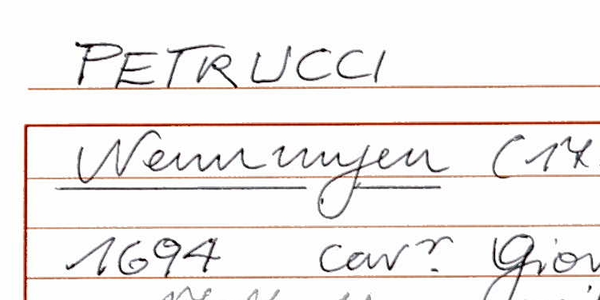 PETRUCCI
Nennungen (17
1694 cavʳ. Giov